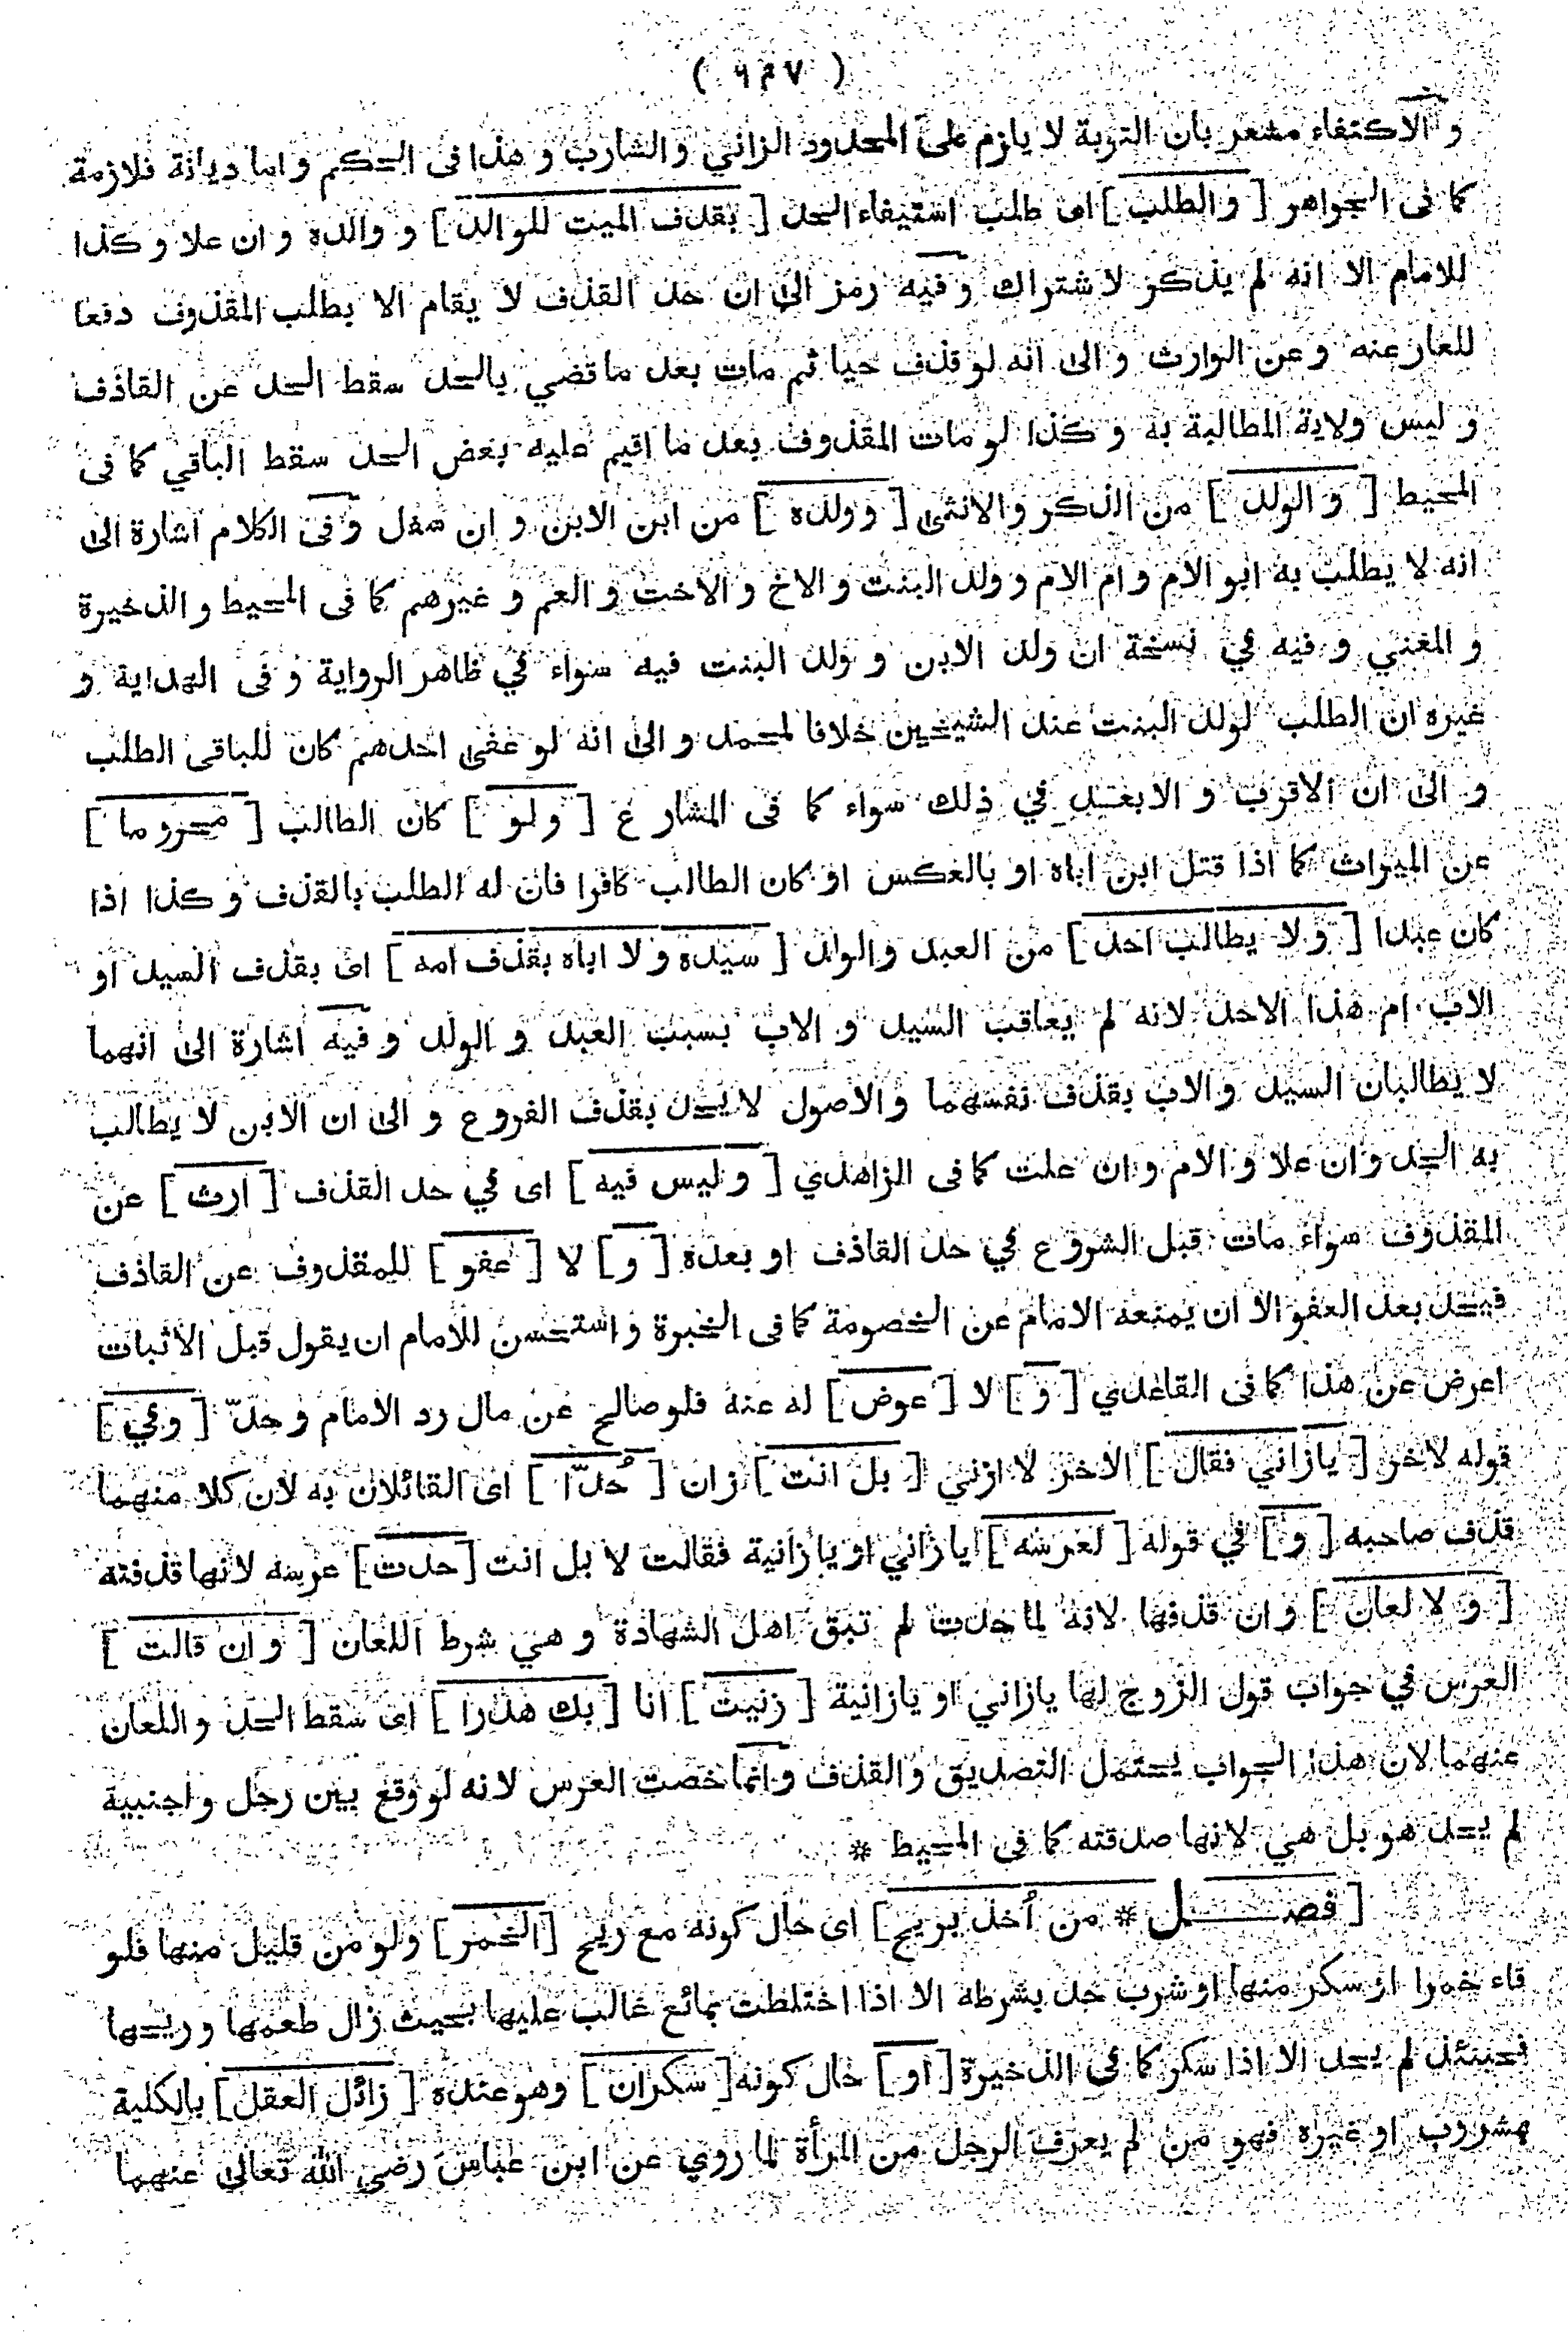 ( ٦٣٧ )
و الاكتفاء مشعر بان التوبة لا يلزم على المحدود الزاني و الشارب و هذا فى الحكم و اما ديانة فلازمة
كما فى الجواهر [ و الطلب ] اى طلب استيفاء الحد [ بقذف الميت للوالد ] و والده و ان علا و كذا
للامام الا انه لم يذكر لاشتراك و فيه رمز الى ان حد القذف لا يقام الا بطلب المقذوف دفعا
للعار عنه و عن الوارث و الى انه لو قذف حيا ثم مات بعد ما قضي بالحد سقط الحد عن القاذف
و ليس ولاية المطالبة به و كذا لو مات المقذوف بعد ما اقيم عليه بعض الحد سقط الباقي كما فى
المحيط [ و الولد ] من الذكر و الانثى [ و ولده ] من ابن الابن و ان سفل و فى الكلام اشارة الى
انه لا يطلب به ابو الام و ام الام و ولد البنت و الاخ و الاخت و العم و غيرهم كما فى المحيط و الذخيرة
و المغني و فيه في نسخة ان ولد الابن و ولد البنت فيه سواء في ظاهر الرواية و فى الهداية و
غيره ان الطلب لولد البنت عند الشيخين خلافا لمحمد و الى انه لو عفى احدهم كان للباقى الطلب
و الى ان الاقرب و الابعد في ذلك سواء كما فى المشارع [ و لو ] كان الطالب [ محروما ]
عن الميراث كما اذا قتل ابن اباه او بالعكس او كان الطالب كافرا فان له الطلب بالقذف و كذا اذا
كان عبدا [ و لا يطالب احد ] من العبد و الولد [ سيده و لا اباه بقذف امه ] اى بقذف السيد او
الاب ام هذا الاحد لانه لم يعاقب السيد و الاب بسبب العبد و الولد و فيه اشارة الى انهما
لا يطالبان السيد و الاب بقذف نفسهما و الاصول لا يحد بقذف الفروع و الى ان الابن لا يطالب
به الجد و ان علا و الام و ان علت كما فى الزاهدي [ و ليس فيه ] اى في حد القذف [ ارث ] عن
المقذوف سواء مات قبل الشروع في حد القاذف او بعده [ و ] لا [ عفو ] للمقذوف عن القاذف
فيحد بعد العفو الا ان يمنعه الامام عن الخصومة كما فى الخبرة و استحسن للامام ان يقول قبل الاثبات
اعرض عن هذا كما فى القاعدي [ و ] لا [ عوض ] له عنه فلو صالح عن مال رد الامام و حدّ [ و في ]
قوله لاخر [ يا زاني فقال ] الاخر لا ازني [ بل انت ] زان [ حُدّا ] اى القائلان به لان كلا منهما
قذف صاحبه [ و ] في قوله [ لعرسه ] ايا زاني او يا زانية فقالت لا بل انت [ حدت ] عرسه لانها قذفته
[ و لا لعان ] و ان قذفها لانه لما حدت لم تبق اهل الشهادة و هي شرط اللعان [ و ان قالت ]
العرس في جواب قول الزوج لها يا زاني او يا زانية [ زنيت ] انا [ بك هدرا ] اى سقط الحد و اللعان
عنهما لان هذا الجواب يحتمل التصديق و القذف و انما خصت العرس لانه لو وقع بين رجل و اجنبية
لم يحد هو بل هي لانها صدقته كما فى المحيط *
[ فصــــل * من اُخذ بريح ] اى حال كونه مع ريح [ الخمر ] و لو من قليل منها فلو
قاء خمرا او سكر منها او شرب حد بشرطه الا اذا اختلطت بمائع غالب عليها بحيث زال طعمها و ريحها
فحينئذ لم يحد الا اذا سكر كما فى الذخيرة [ او ] حال كونه [ سكران ] و هو عنده [ زائل العقل ] بالكلية
بمشروب او غيره فهو من لم يعرف الرجل من المرأة لما روي عن ابن عباس رضي الله تعالى عنهما